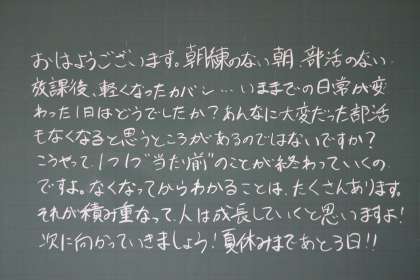 おはようございます。朝練のない朝、部活のない
放課後、軽くなったカバン…いままでの日常が変
わった1日はどうでしたか？あんなに大変だった部活
もなくなると思うところがあるのではないですか？
こうやって、1つ1つ"当た前"のことが終わっていくの
ですよ。なくなってからわかることは、たくさんあります。
それが積み重なって、人は成長していくと思いますよ！
次に向かっていきましょう！夏休みまであと3日!!